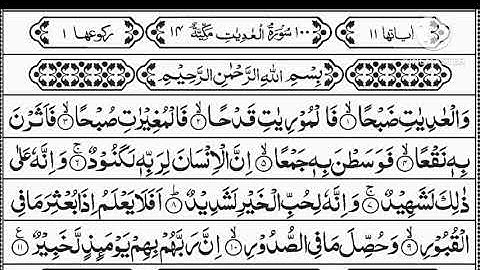 اٰیاتها ۱۱ ۱۰۰ سُوْرَةُ الْعٰدِیٰتِ مَكِّیَّةٌ ۱۴ ركوعها ۱
بِسْمِ اللّٰهِ الرَّحْمٰنِ الرَّحِیْمِ
وَالْعٰدِیٰتِ ضَبْحًا ۙ﴿۱﴾ فَالْمُوْرِیٰتِ قَدْحًا ۙ﴿۲﴾ فَالْمُغِیْرٰتِ صُبْحًا ۙ﴿۳﴾ فَاَثَرْنَ
بِهٖ نَقْعًا ۙ﴿۴﴾ فَوَسَطْنَ بِهٖ جَمْعًا ۙ﴿۵﴾ اِنَّ الْاِنْسَانَ لِرَبِّهٖ لَكَنُوْدٌ ۚ﴿۶﴾ وَاِنَّهٗ عَلٰی
ذٰلِكَ لَشَهِیْدٌ ۚ﴿۷﴾ وَاِنَّهٗ لِحُبِّ الْخَیْرِ لَشَدِیْدٌ ؕ﴿۸﴾ اَفَلَا یَعْلَمُ اِذَا بُعْثِرَ مَا فِی
الْقُبُوْرِ ۙ﴿۹﴾ وَحُصِّلَ مَا فِی الصُّدُوْرِ ۙ﴿۱۰﴾ اِنَّ رَبَّهُمْ بِهِمْ یَوْمَئِذٍ لَّخَبِیْرٌ ﴿۱۱﴾